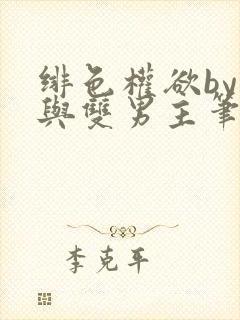 緋色權欲by
與雙男主筆
李克平